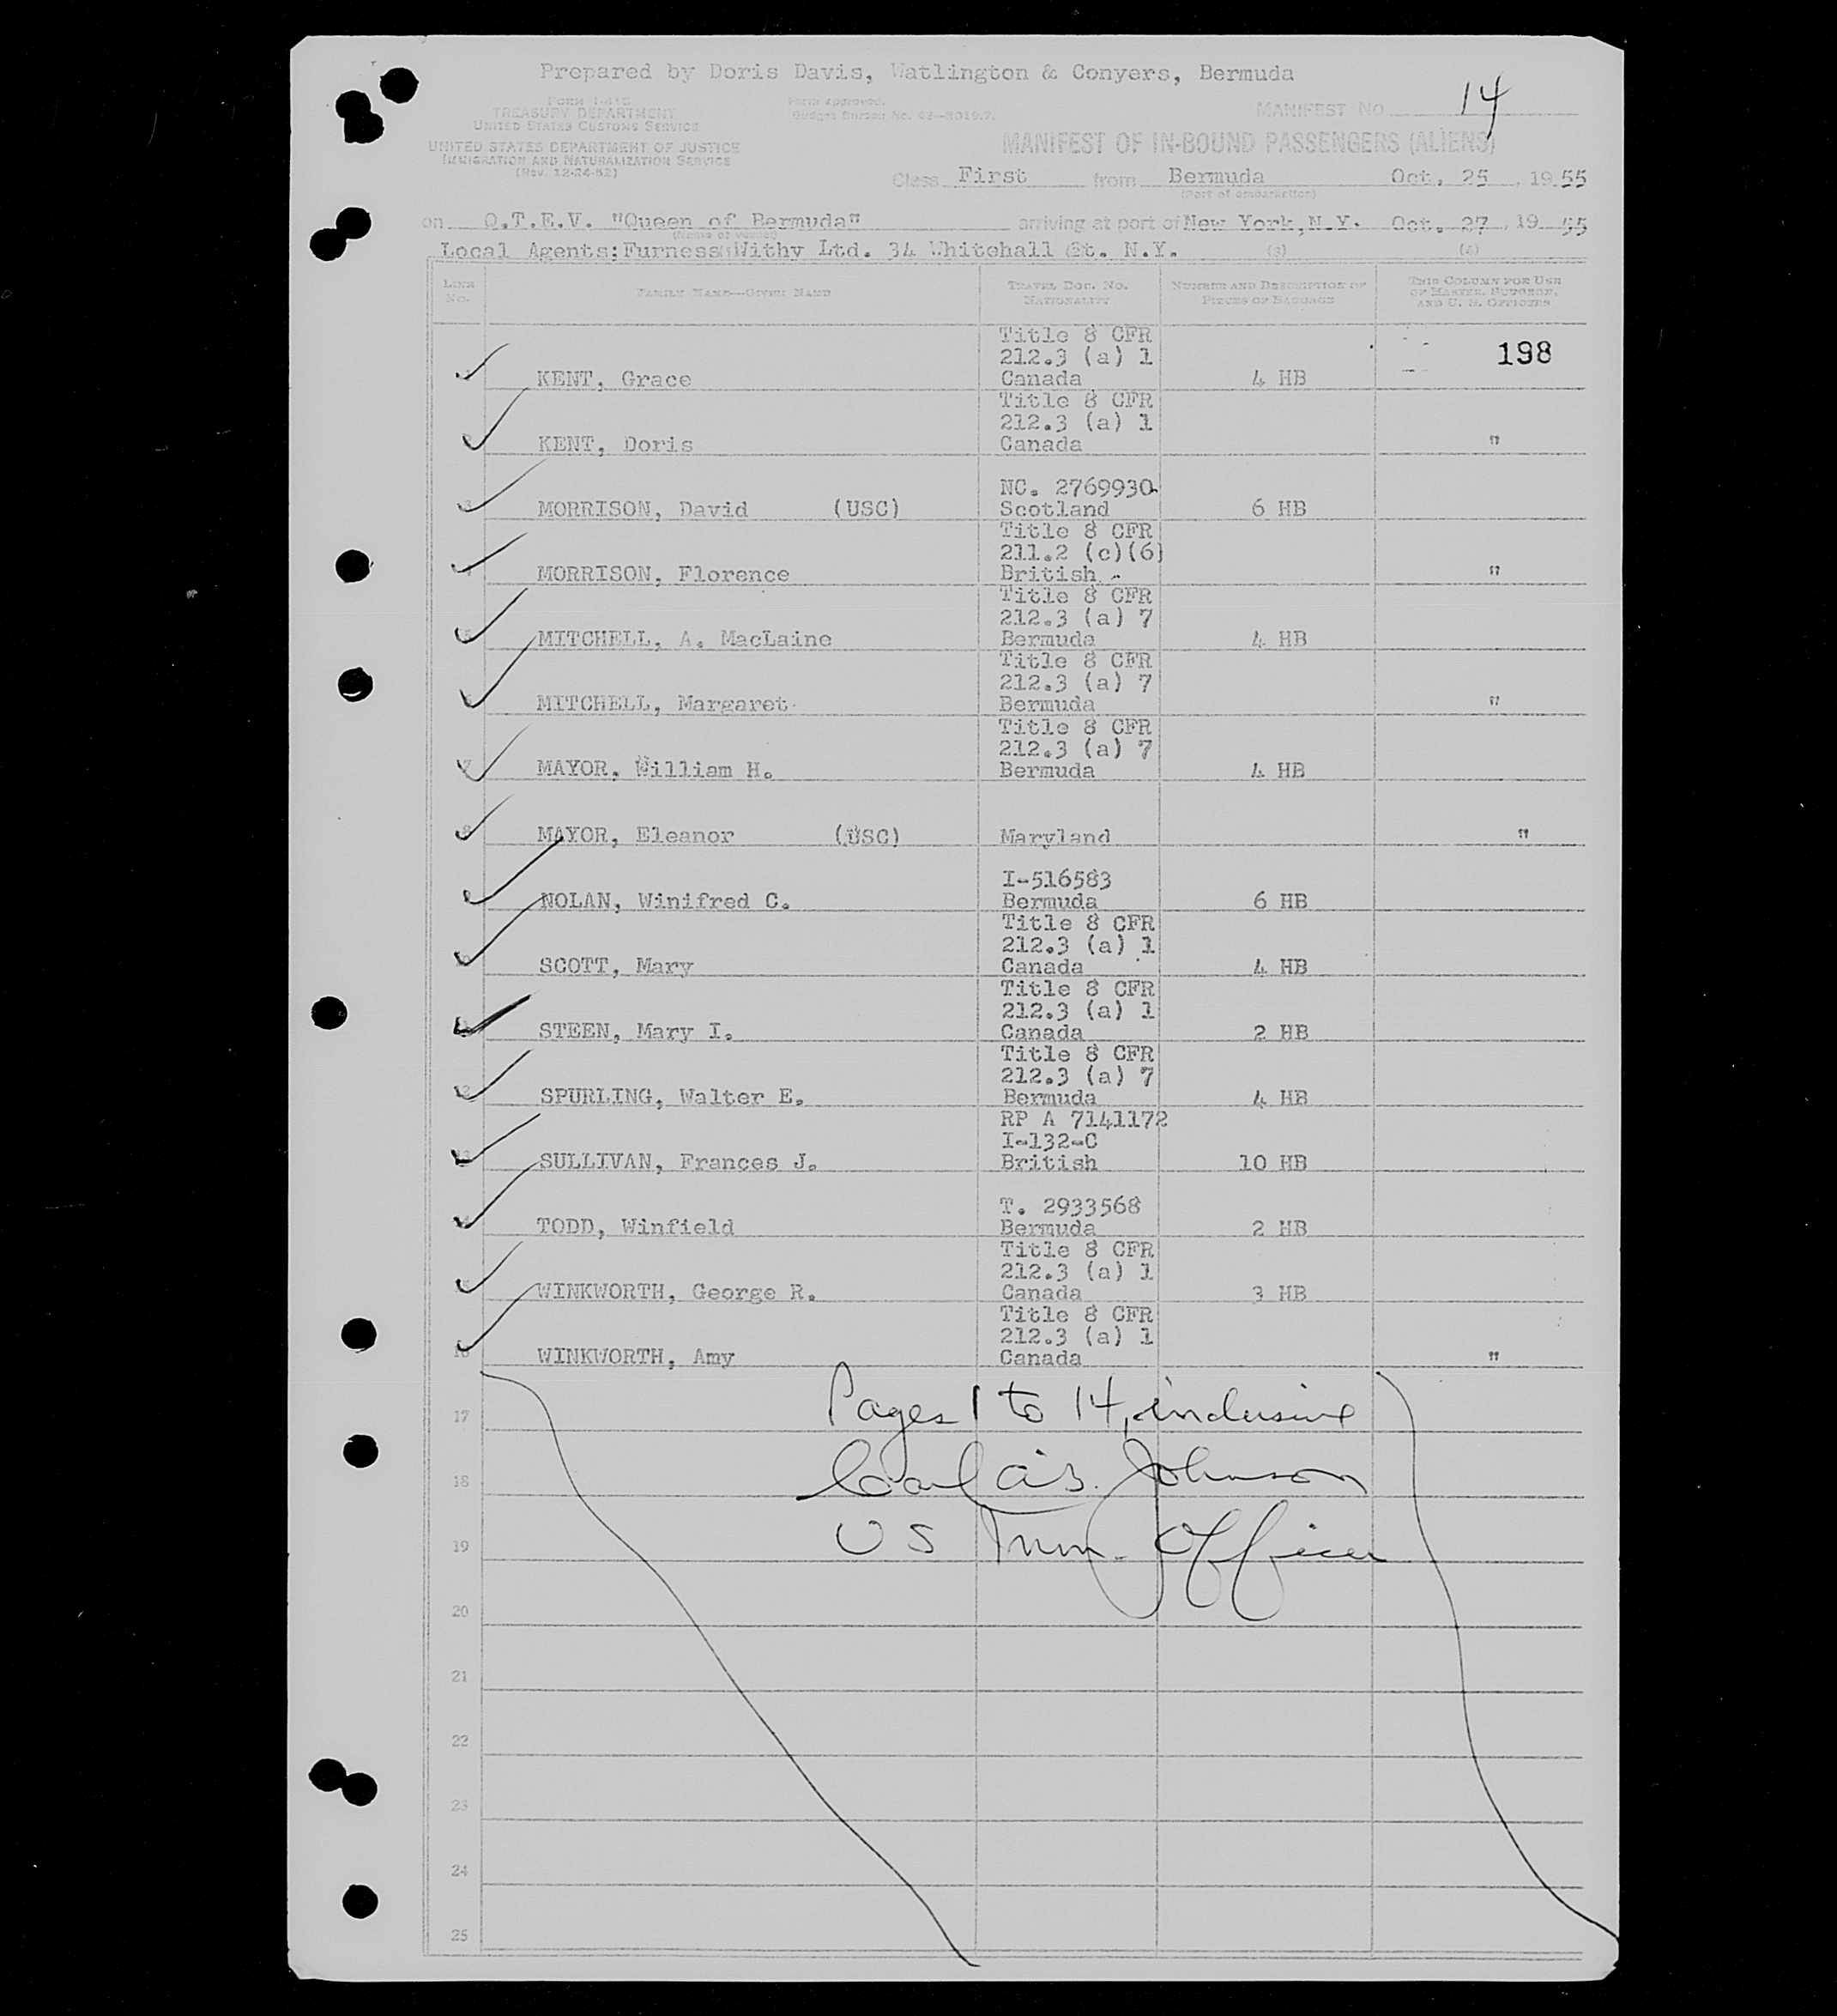 Prepared by Doris Davis, Watlington & Conyers, Bermuda
Form I-418
TREASURY DEPARTMENT
UNITED STATES CUSTOMS SERVICE
UNITED STATES DEPARTMENT OF JUSTICE
IMMIGRATION AND NATURALIZATION SERVICE
(Rev. 12-24-52)
Form approved.
Budget Bureau No.
MANIFEST NO. 14
MANIFEST OF IN-BOUND PASSENGERS (ALIENS)
Class First from Bermuda Oct. 25, 1955
(Port of embarkation)
on Q.T.E.V. "Queen of Bermuda" arriving at port of New York, N.Y. Oct. 27, 19 55
(Name of vessel)
Local Agents: Furness Withy Ltd. 34 Whitehall St. N.Y. (3) (4)
LINE No. FAMILY NAME—GIVEN NAME TRAVEL DOC. NO. NATIONALITY NUMBER AND DESCRIPTION OF PIECES OF BAGGAGE THIS COLUMN FOR USE OF MASTER, SURGEON, AND U. S. OFFICERS
Title 8 CFR
212.3 (a) 1 198
KENT, Grace Canada 4 HB
Title 8 CFR
212.3 (a) 1
KENT, Doris Canada "
NC. 2769930
3 MORRISON, David (USC) Scotland 6 HB
Title 8 CFR
211.2 (c)(6)
MORRISON, Florence British "
Title 8 CFR
212.3 (a) 7
5 MITCHELL, A. MacLaine Bermuda 4 HB
Title 8 CFR
212.3 (a) 7
6 MITCHELL, Margaret Bermuda "
Title 8 CFR
212.3 (a) 7
7 MAYOR, William H. Bermuda 4 HB
8 MAYOR, Eleanor (USC) Maryland "
I-516583
NOLAN, Winifred C. Bermuda 6 HB
Title 8 CFR
212.3 (a) 1
10 SCOTT, Mary Canada 4 HB
Title 8 CFR
212.3 (a) 1
STEEN, Mary I. Canada 2 HB
Title 8 CFR
212.3 (a) 7
12 SPURLING, Walter E. Bermuda 4 HB
RP A 7141172
I-132-C
13 SULLIVAN, Frances J. British 10 HB
T. 2933568
TODD, Winfield Bermuda 2 HB
Title 8 CFR
212.3 (a) 1
15 WINKWORTH, George R. Canada 3 HB
Title 8 CFR
212.3 (a) 1
16 WINKWORTH, Amy Canada "
Pages 1 to 14, inclusive
17
Johnson
18
US Imm. Officer
19
20
21
22
23
24
25